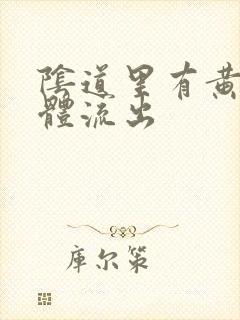 陰道里有黄
體流出
库尔策